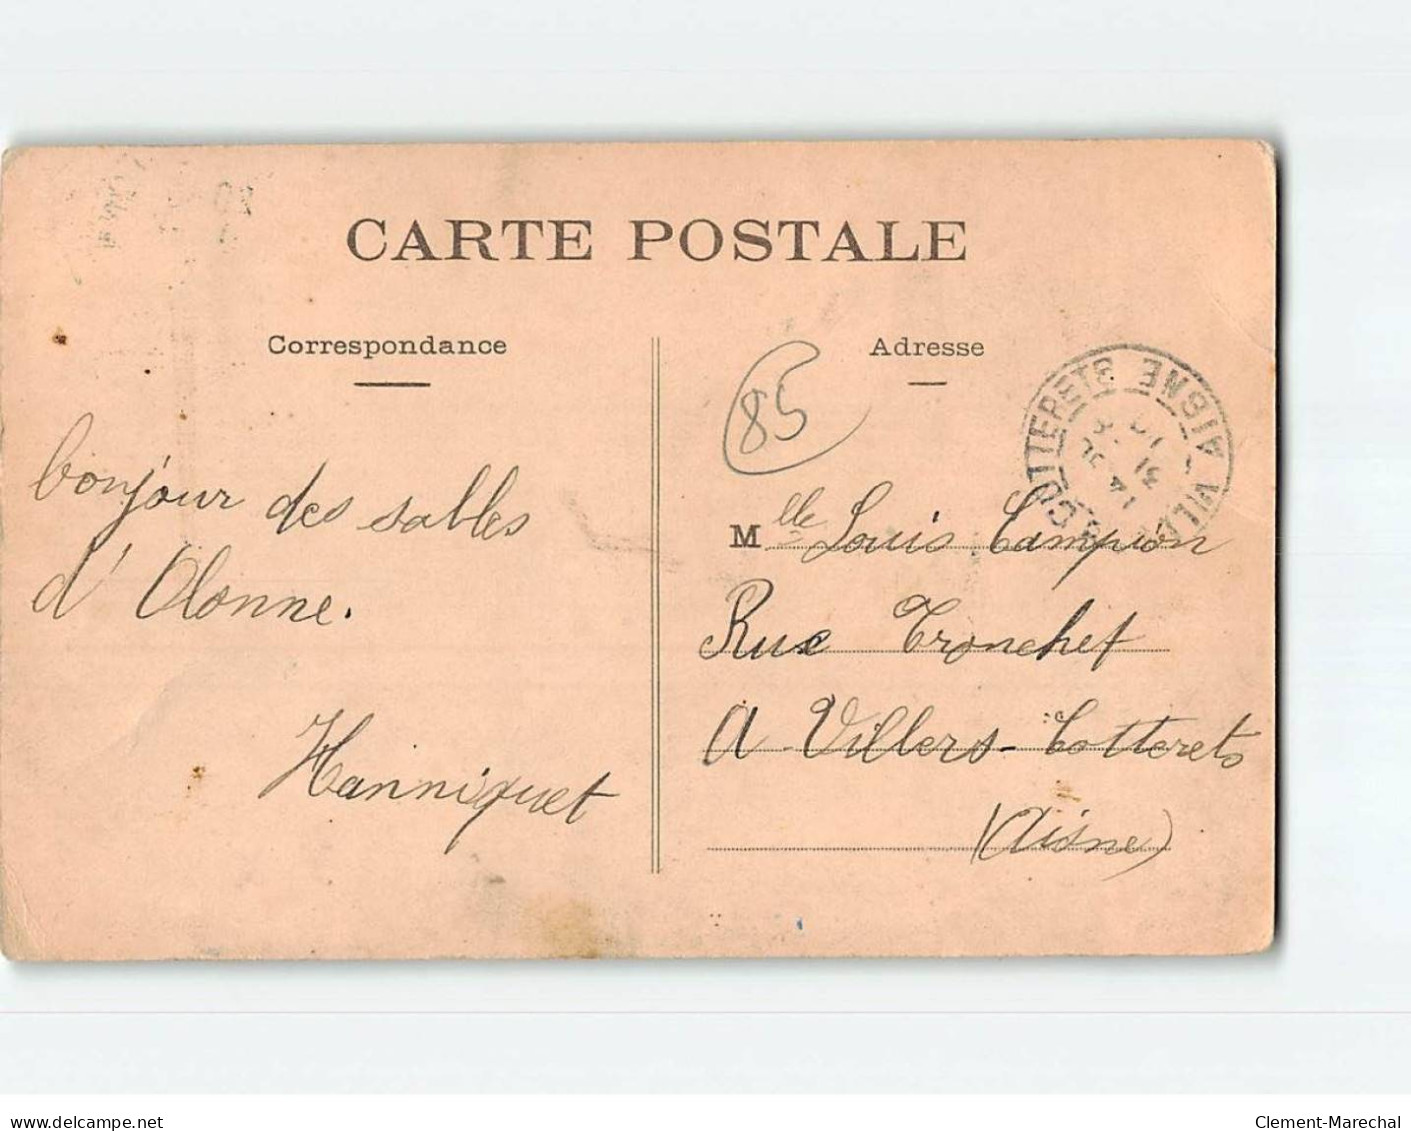 CARTE POSTALE
Correspondance
bonjour des sables
d'Olonne.
Hanniquet
Adresse
85
Mlle Louis Campion
Rue Tronchet
A Villers-Cotterets
(Aisne)
VILLERS COTTERETS AISNE
delcampe.net
Clement-Marechal